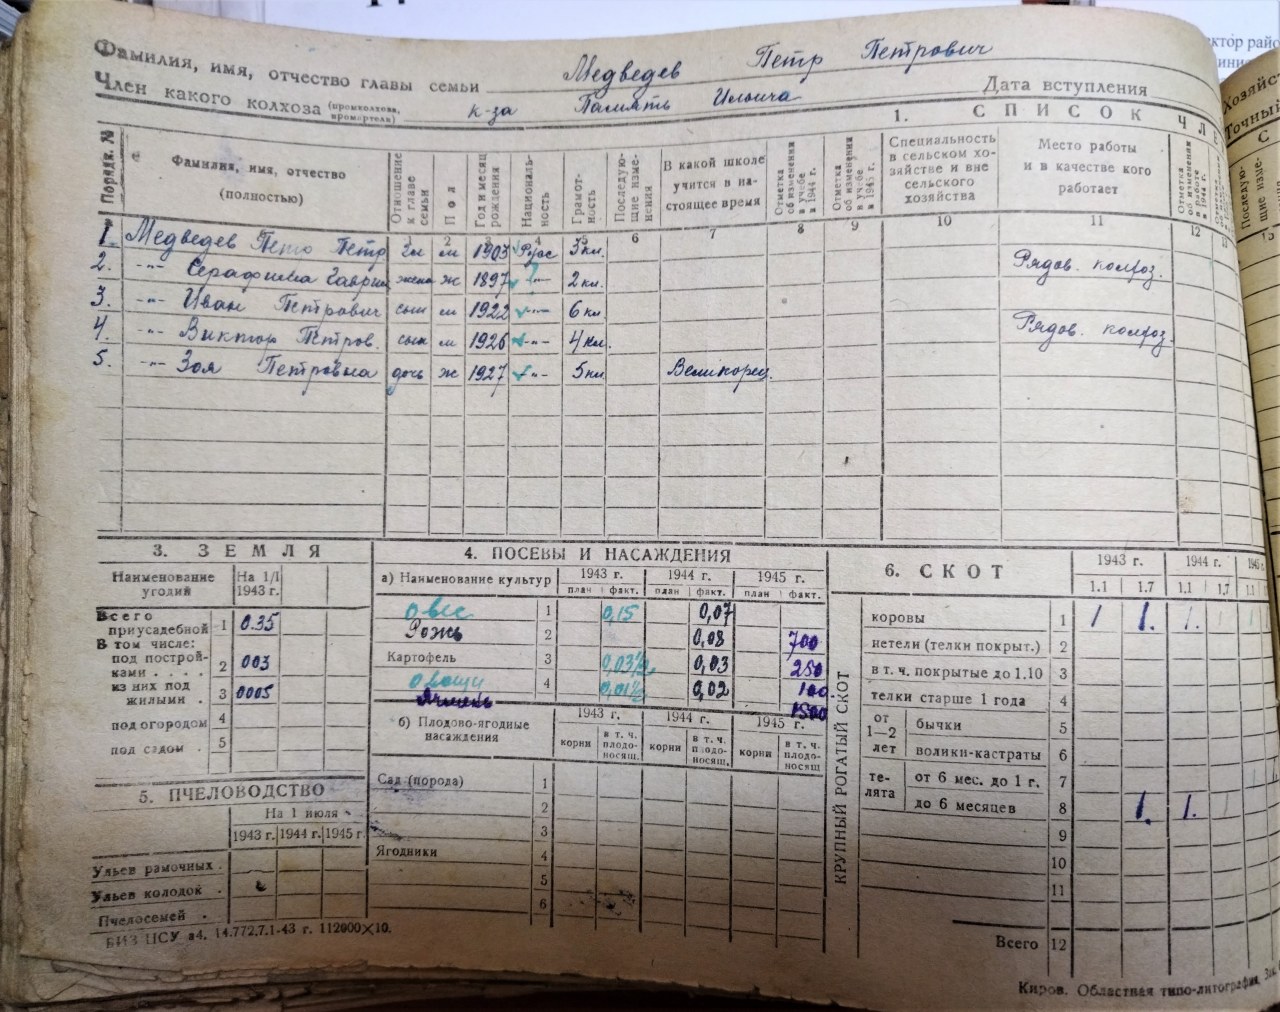 Фамилия, имя, отчество главы семьи Медведев Петр Петрович
Член какого колхоза (промколхоза, промартели) к-за Память Ильича Дата вступления
1. СПИСОК ЧЛЕ
Порядк. № Фамилия, имя, отчество (полностью) Отношение к главе семьи Пол Год и месяц рождения Националь-ность Грамот-ность Последую-щие изме-нения В какой школе учится в на-стоящее время Отметка об изменении в учебе в 1944 г. Отметка об изменении в учебе в 1945 г. Специальность в сельском хо-зяйстве и вне сельского хозяйства Место работы и в качестве кого работает Отметка об изменении в работе в 1944 г.
1 2 3 4 5 6 7 8 9 10 11 12
1. Медведев Петр Петр гл м 1903 Рус 3 кл.
2. -"- Серафима Гаврил жена ж 1897 -"- 2 кл. Рядов. колхоз.
3. -"- Иван Петрович сын м 1922 -"- 6 кл
4. -"- Виктор Петров. сын м 1926 -"- 4 кл. Рядов. колхоз.
5. -"- Зоя Петровна дочь ж 1927 -"- 5 кл Великорец.
3. ЗЕМЛЯ
Наименование угодий На 1/I 1943 г.
Всего приусадебной 1 0.35
В том числе:
под построй-ками . . . . 2 003
из них под жилыми . 3 0005
под огородом 4
под садом . 5
5. ПЧЕЛОВОДСТВО
На 1 июля
1943 г. 1944 г. 1945 г.
Ульев рамочных .
Ульев колодок .
Пчелосемей .
БИЗ ЦСУ а4. 14.772.7.1-43 г. 112000×10.
4. ПОСЕВЫ И НАСАЖДЕНИЯ
а) Наименование культур 1943 г. 1944 г. 1945 г.
план факт. план факт. план факт.
Овес 1 0,15 0,07
Рожь 2 0,08 700
Картофель 3 0,03 250
Овощи 4 0,02 100
Ячмень 1500
б) Плодово-ягодные насаждения 1943 г. 1944 г. 1945 г.
корни в т. ч. плодо-носящ. корни в т. ч. плодо-носящ. корни в т. ч. плодо-носящ
Сад (порода) 1
2
3
Ягодники 4
5
6
6. СКОТ 1943 г. 1944 г. 1945
1.1 1.7 1.1 1.7 1.1
КРУПНЫЙ РОГАТЫЙ СКОТ
коровы 1 1 1. 1.
нетели (телки покрыт.) 2
в т. ч. покрытые до 1.10 3
телки старше 1 года 4
от 1—2 лет бычки 5
волики-кастраты 6
те-лята от 6 мес. до 1 г. 7
до 6 месяцев 8 1. 1.
9
10
11
Всего 12
Киров. Областная типо-литография,
Хозяйст
Точный
Последую-щие изме-